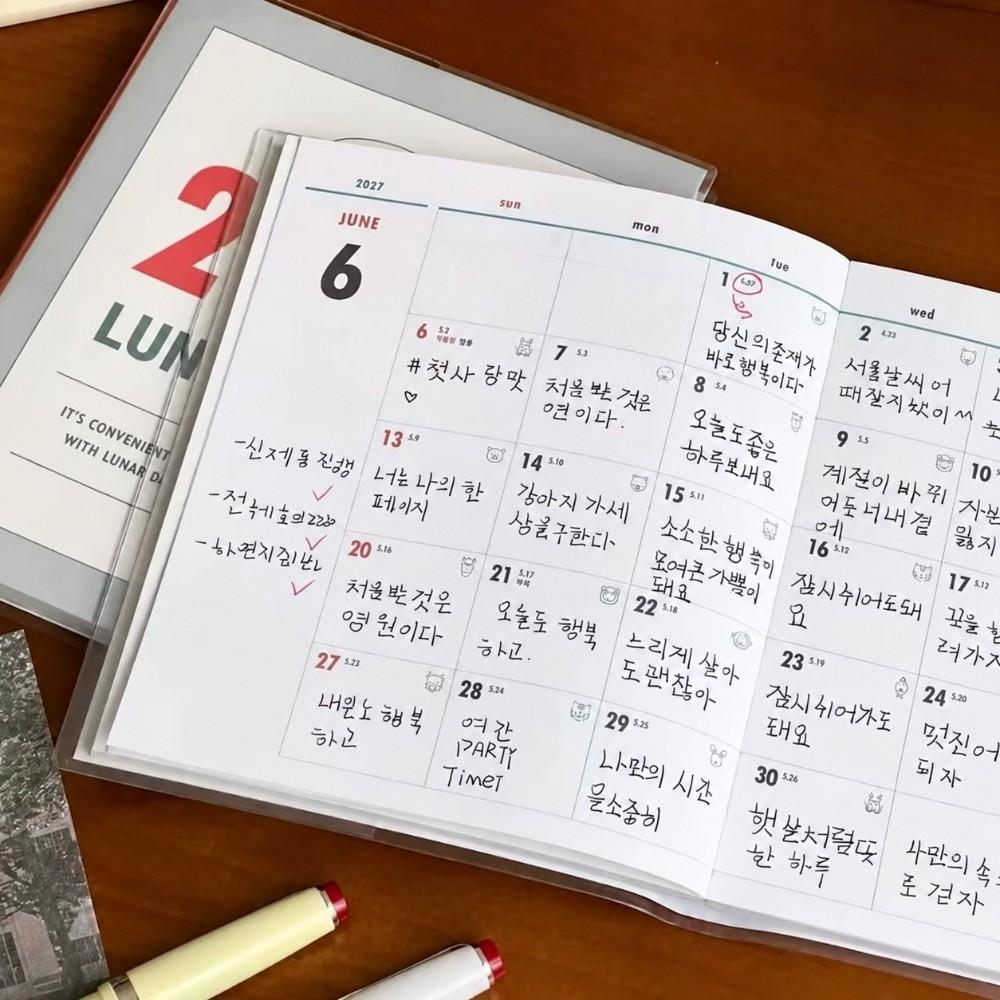 2
LUN
IT'S CONVENIENT
WITH LUNAR DA
2027
JUNE
6
sun
mon
Tue
wed
1
당신의존재가
바로행복이다
2 4.23
서울날씨어
때잘지냈이^^
6 5.2
#첫사랑맛
♡
7 5.3
처음봤은것은
연이다.
8 5.4
오늘도좋은
하루보내요
9 5.5
계절이바뀌
어도너내곁
에
10
13 5.9
너는나의한
페이지
14 5.10
강아지가세
상을구한다
15 5.11
소소한행복이
모여큰기쁨이
돼요
16 5.12
잠시쉬어도돼
요
17 5.12
-신제품진행
20 5.16
처음받은것은
영원이다
21 5.17
오늘도행복
하고.
22 5.18
느리게살아
도괜찮아
23 5.19
잠시쉬어가도
돼요
24 5.20
멋진어
되자
27 5.23
행복
하고
28 5.24
여긴
PARTY
Time!
29 5.25
나만의시간
을소중히
30 5.26
햇살처럼따뜻
한하루
나만의속
로걷자